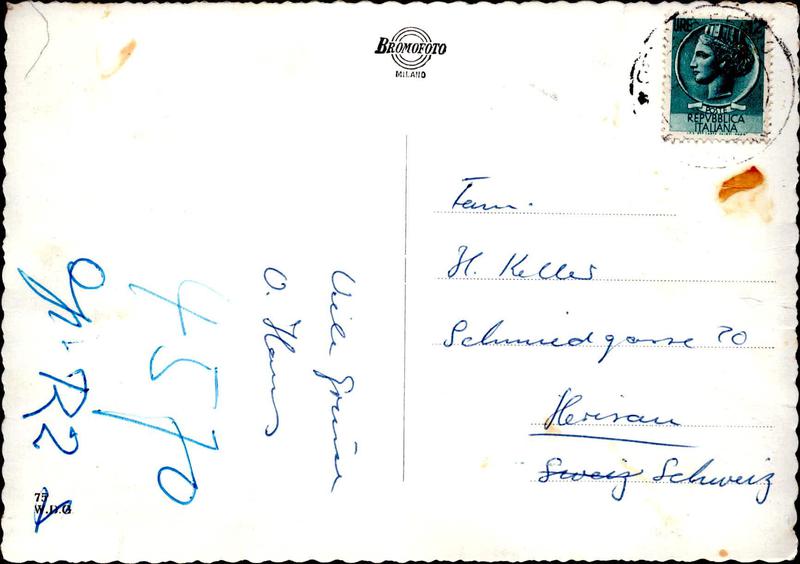 BROMOFOTO
MILANO
LIRE
POSTE
REPVBBLICA
ITALIANA
Fam.
H. Keller
Schmiedgasse 20
Herisau
Sweiz Schweiz
Viele Grüsse
O. Hans
4570
R2
75
W.D.G